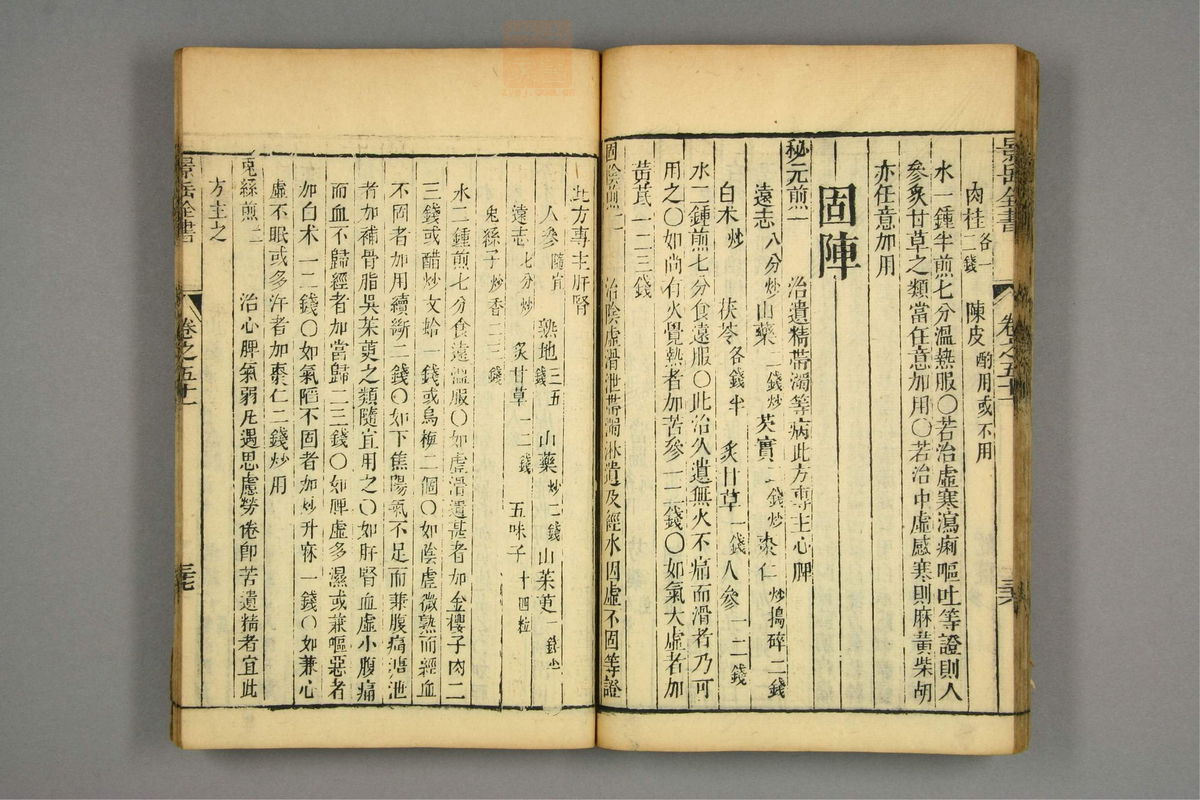 景岳全書 卷之五十一 三六
肉桂各一二錢 陳皮酌用或不用
水一鍾半煎七分溫熱服○若治虛寒瀉痢嘔吐等證則人
參炙甘草之類當任意加用○若治中虛感寒則麻黃柴胡
亦任意加用
固陣
秘元煎一 治遺精帶濁等病此方專主心脾
遠志八分炒 山藥二錢炒 芡實二錢炒 棗仁炒搗碎二錢
白朮炒 茯苓各錢半 炙甘草一錢 人參一二錢
水二鍾煎七分食遠服○此治久遺無火不痛而滑者乃可
用之○如尚有火覺熱者加苦參一二錢○如氣大虛者加
黃芪一二三錢
固陰煎二 治陰虛滑泄帶濁淋遺及經水因虛不固等證
此方專主肝腎
人參隨宜 熟地三五錢 山藥炒二錢 山茱萸一錢半
遠志七分炒 炙甘草一二錢 五味子十四粒
兔絲子炒香二三錢
水二鍾煎七分食遠溫服○如虛滑遺甚者加金櫻子肉二
三錢或醋炒文蛤一錢或烏梅二個○如陰虛微熱而經血
不固者加用續斷二錢○如下焦陽氣不足而兼腹痛溏泄
者加補骨脂吳茱萸之類隨宜用之○如肝腎血虛小腹痛
而血不歸經者加當歸二三錢○如脾虛多濕或兼嘔惡者
加白朮一二錢○如氣陷不固者加炒升麻一錢○如兼心
虛不眠或多汗者加棗仁二錢炒用
兔絲煎三 治心脾氣弱凡遇思慮勞倦卽苦遺精者宜此
方主之
景岳全書 卷之五十一 三七